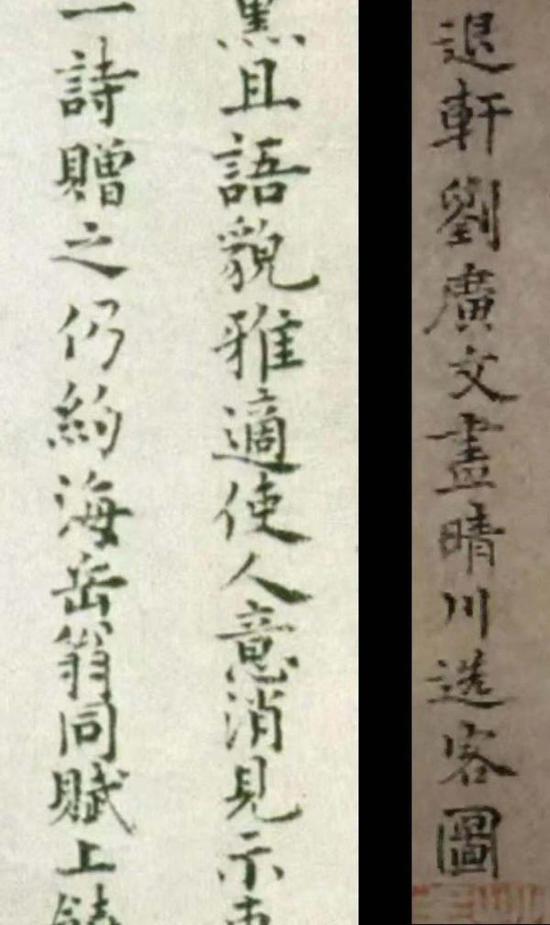 退軒劉廣文畫晴川送客圖
且語貌雅適使人意消見示
一詩贈之仍約海岳翁同賦上